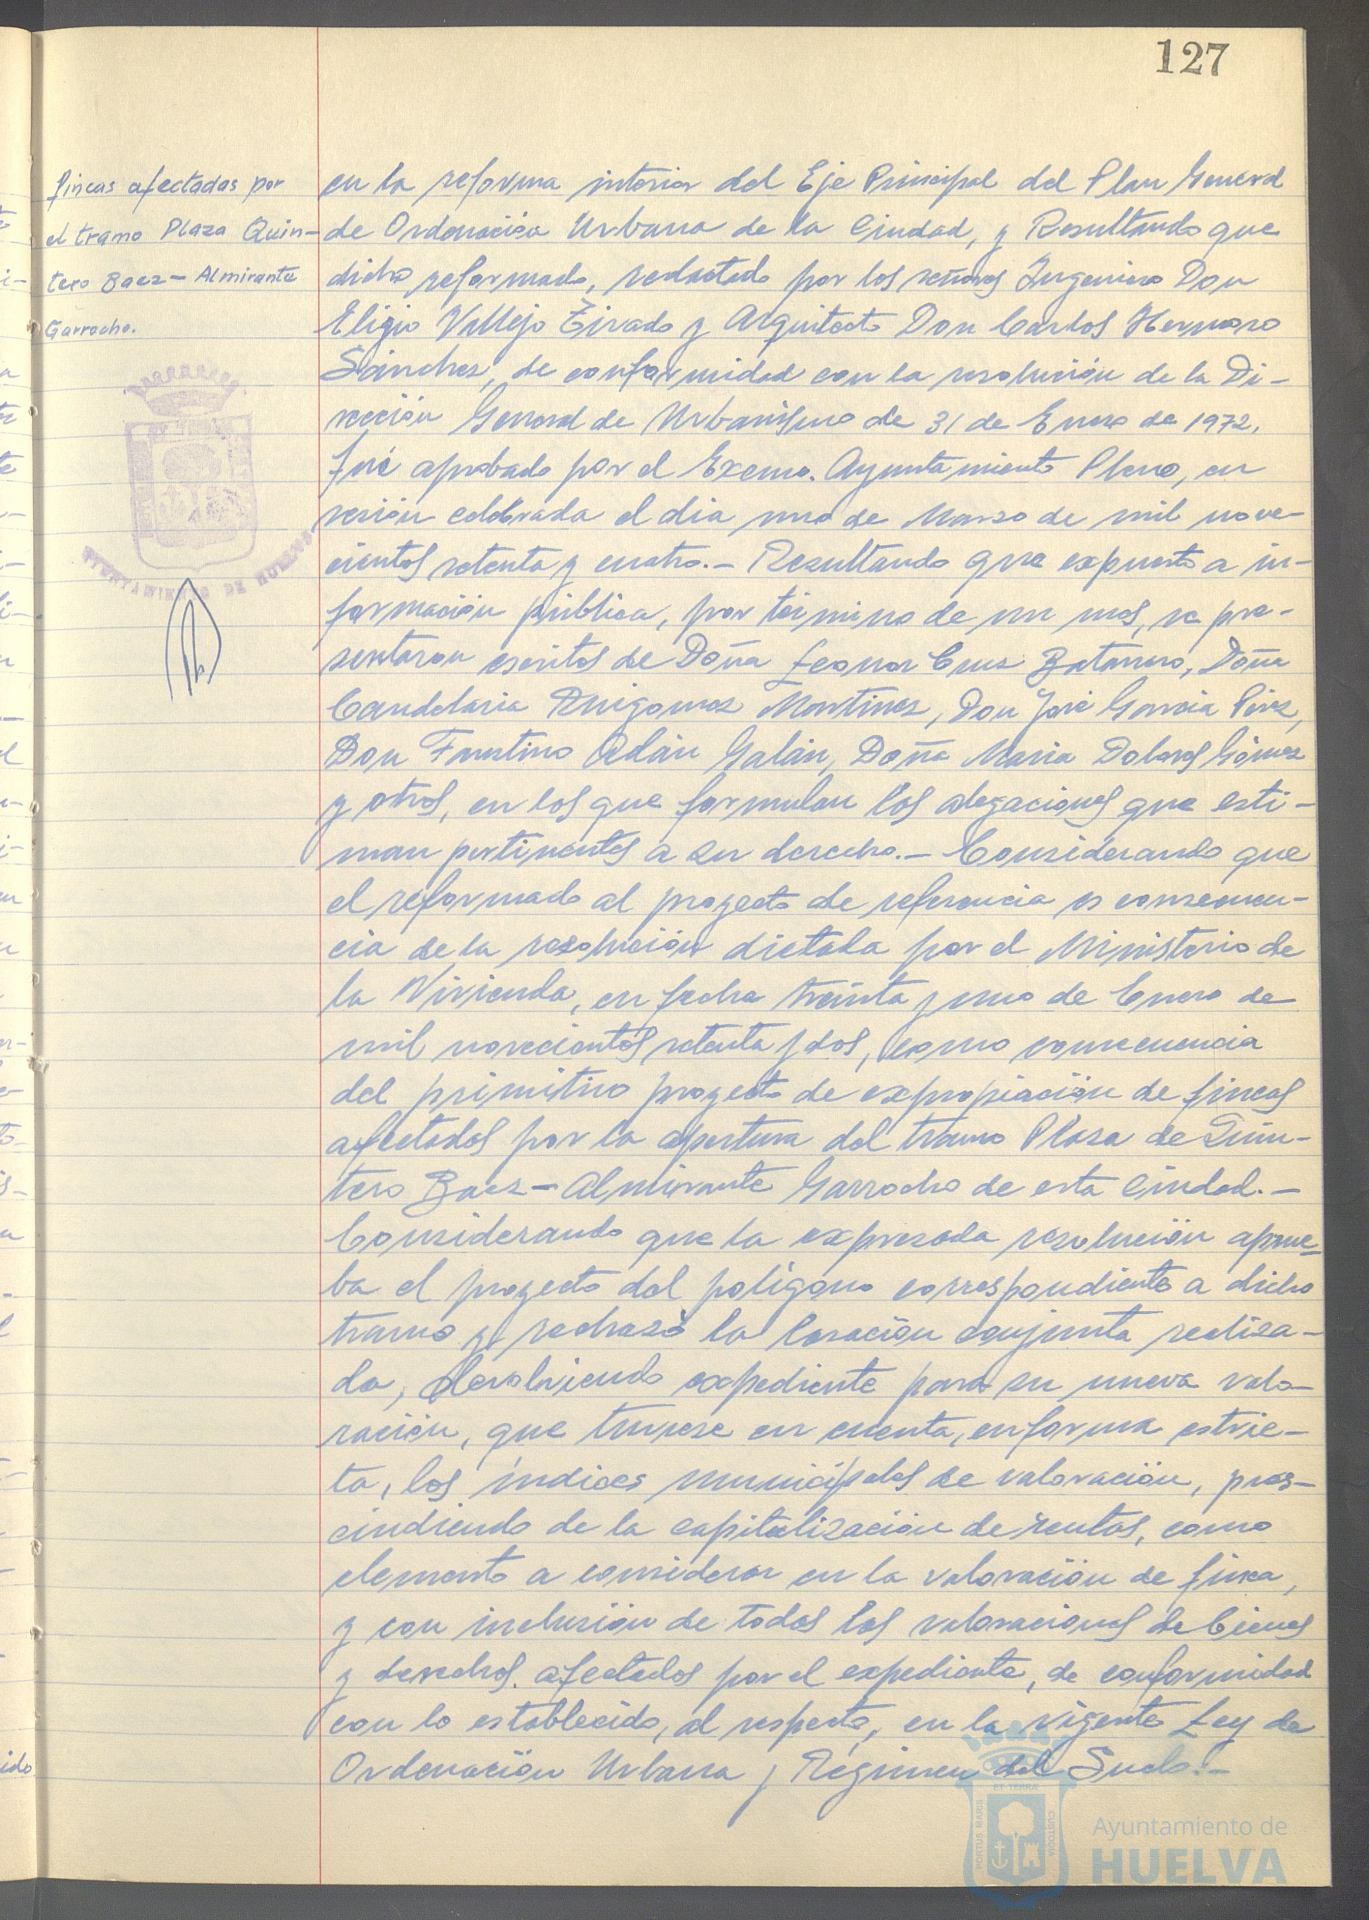 127
fincas afectadas por
el tramo Plaza Quin-
tero Baez - Almirante
Garrocho.
AYUNTAMIENTO DE HUELVA
en la reforma interior del Eje Principal del Plan General
de Ordenación Urbana de la Ciudad, y Resultando que
dicho reformado, redactado por los señores Ingeniero Don
Eligio Vallejo Tirado y Arquitecto Don Carlos Hermoso
Sánchez, de conformidad con la resolución de la Di-
rección General de Urbanismo de 31 de Enero de 1972,
fué aprobado por el Excmo. Ayuntamiento Pleno, en
sesión celebrada el dia uno de Marzo de mil nove-
cientos setenta y cuatro.- Resultando que expuesto a in-
formación pública, por término de un mes, se pre-
sentaron escritos de Doña Leonor Cruz Batanero, Doña
Candelaria Martinez, Don José Garcia Pérez,
Don Faustino Adán Galán, Doña Maria Dolores Gómez
y otros, en los que formulan las alegaciones que esti-
man pertinentes a su derecho.- Considerando que
el reformado al proyecto de referencia es consecuen-
cia de la resolución dictada por el Ministerio de
la Vivienda, en fecha treinta y uno de Enero de
mil novecientos setenta y dos, como consecuencia
del primitivo proyecto de expropiación de fincas
afectadas por la apertura del tramo Plaza de Quin-
tero Baez - Almirante Garrocho de esta Ciudad.-
Considerando que la expresada resolución aprue-
ba el proyecto del poligono correspondiente a dicho
tramo y rechazó la tasación conjunta realiza-
da, devolviendo expediente para su nueva valo-
ración, que tuviese en cuenta, en forma estric-
ta, los índices municipales de valoración, pres-
cindiendo de la capitalización de rentas, como
elemento a considerar en la valoración de finca,
y con inclusión de todas las valoraciones de bienes
y derechos afectados por el expediente, de conformidad
con lo establecido, al respecto, en la vigente Ley de
Ordenación Urbana y Régimen del Suelo.-
PORTUS MARIS ET TERRAE CUSTODIA
Ayuntamiento de
HUELVA